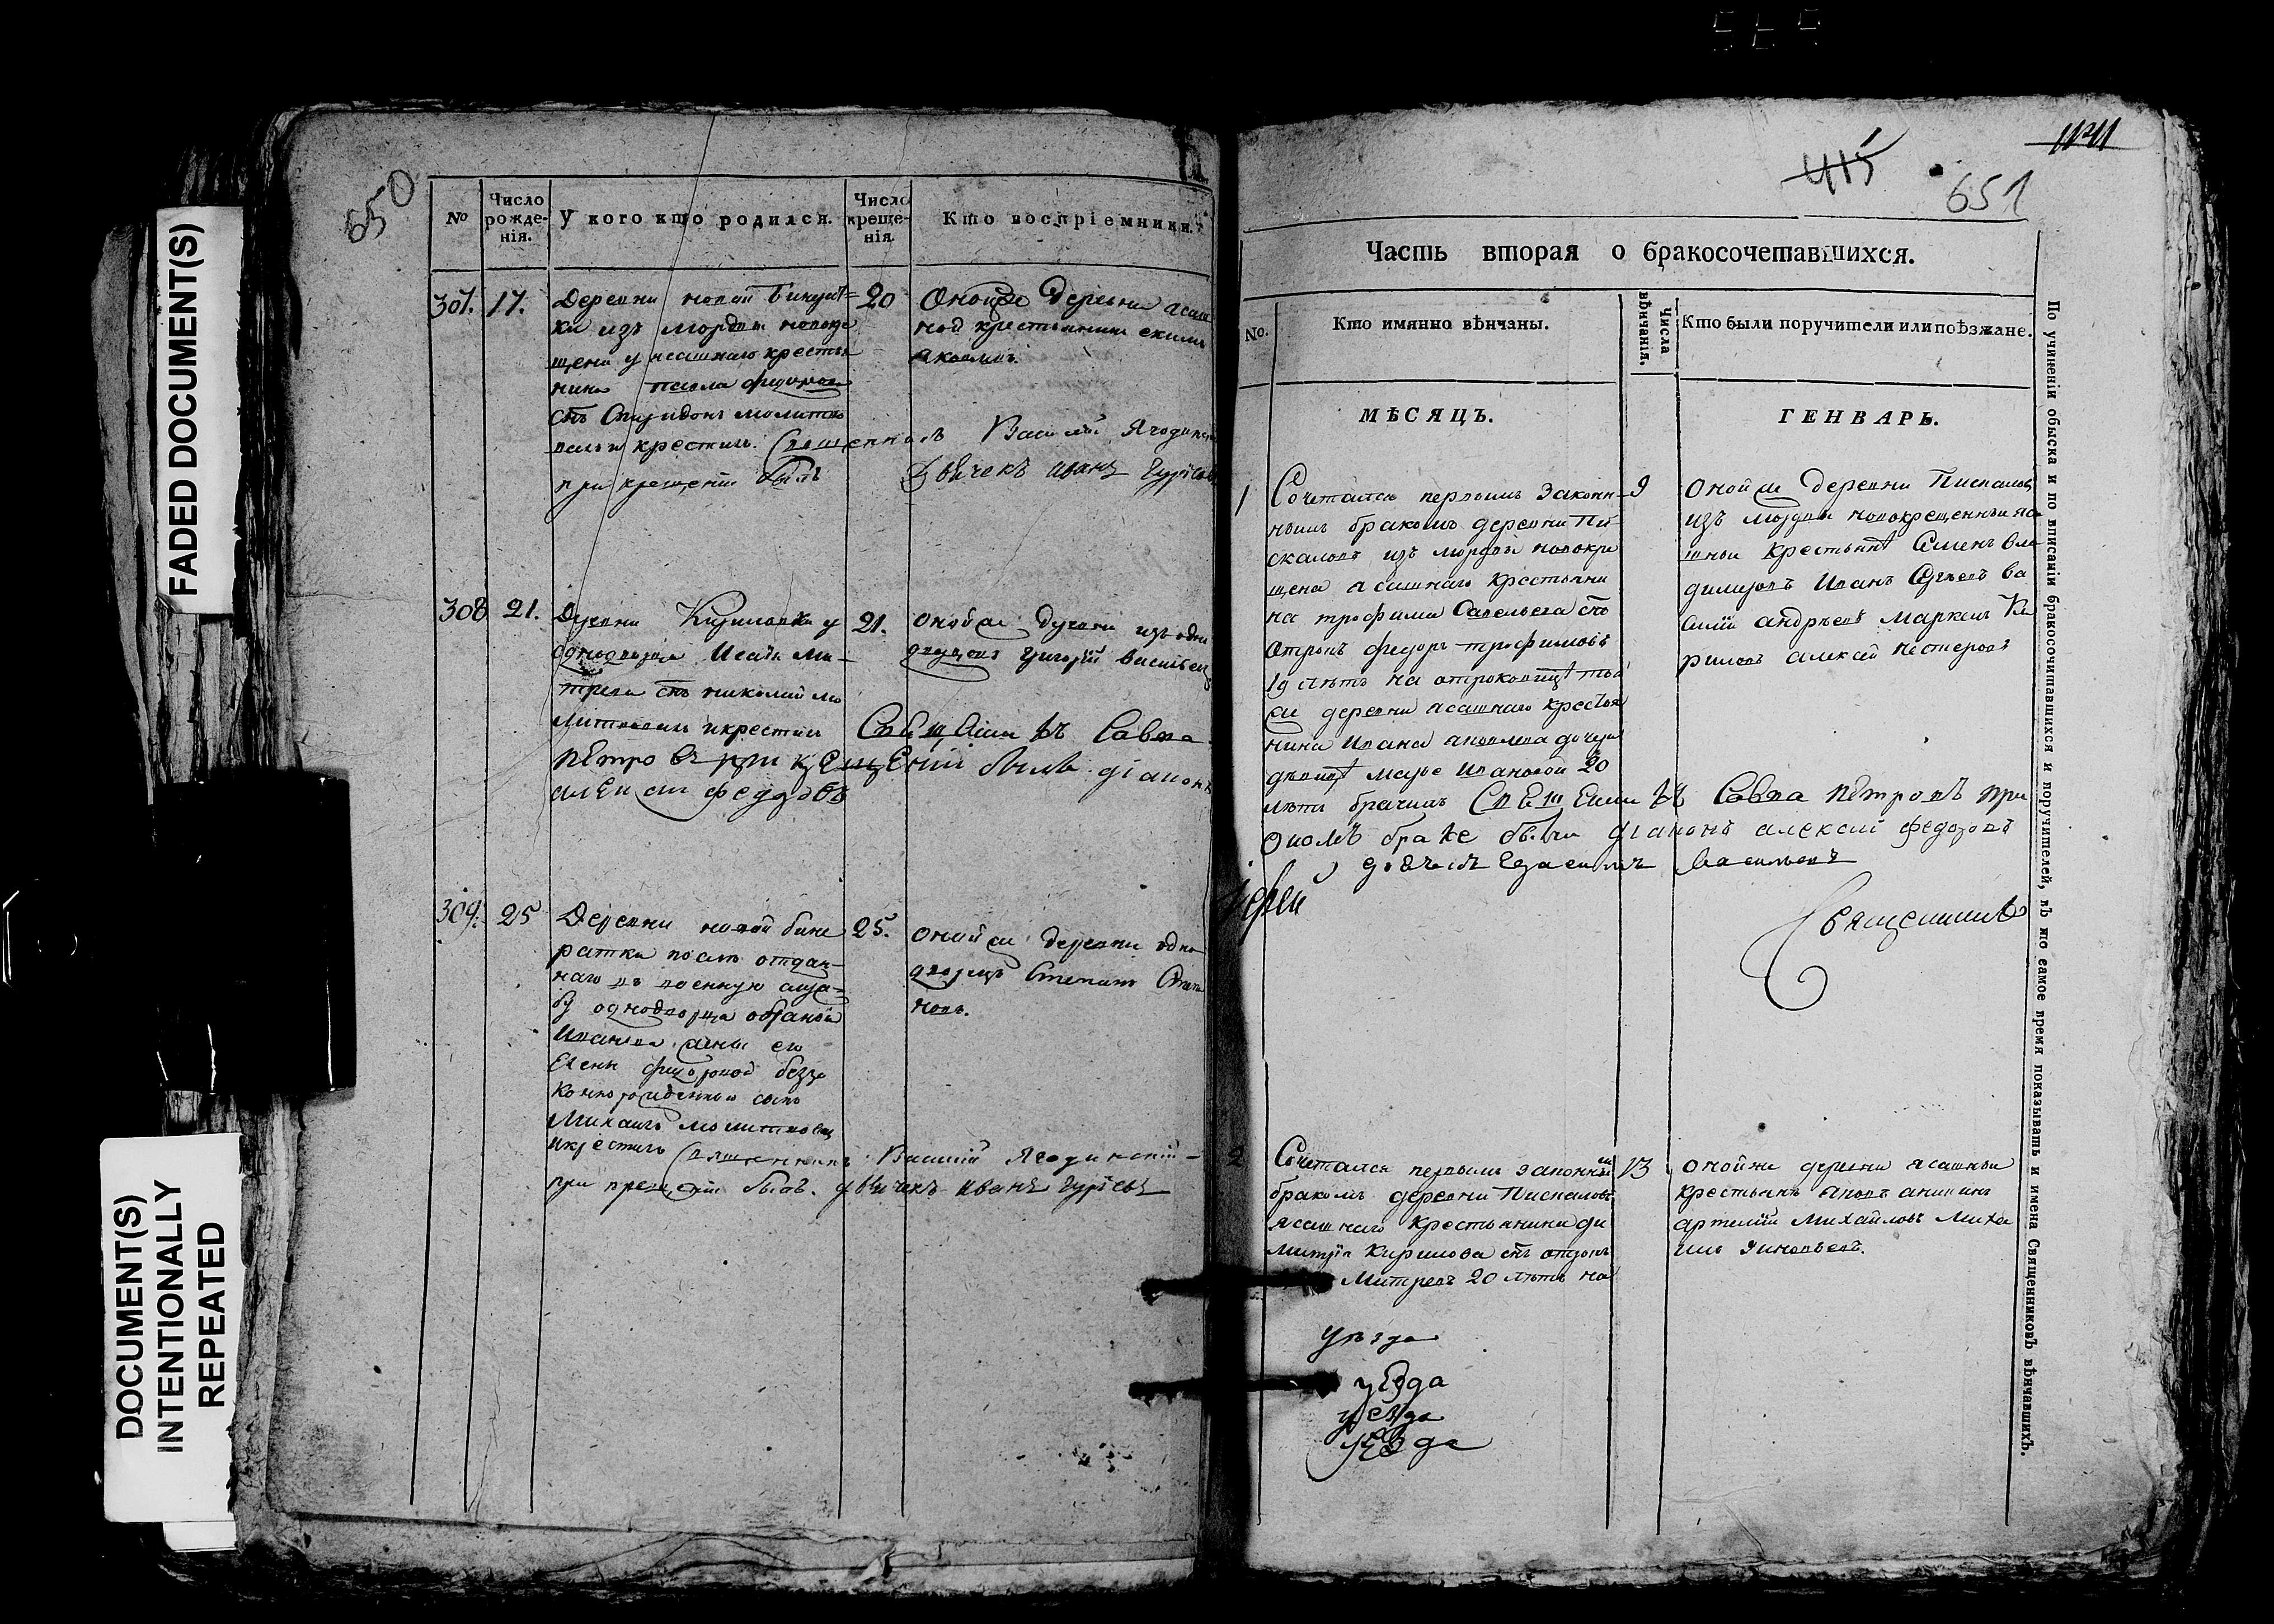 FADED DOCUMENT(S)
DOCUMENT(S)
INTENTIONALLY
REPEATED
650
No
Число рожденія.
У кого кто родился.
Число крещенія.
Кто воспріемники.
307.
17.
Деревни новой Бинара-
ки изъ мордвы новокре
щена у ясашнаго крестья
нина Павла
снъ Спиридонъ молитво
валъ и крестилъ Священникъ Василій Ягодинскій
при крещеніи былъ дьячекъ иванъ Гурьевъ
20
Оной же деревни ясаш
ной крестьянинъ екимъ
308
21.
Деревни Кириловки у
однодворца Исаія Ми-
трева снъ николай мо
литвовалъ и крестилъ Свещенникъ Савва
Петровъ при крещеніи былъ діаконъ
алексей федоровъ
21.
оной же деревни изъ одно
дворцевъ григорій васильевъ
309.
25
Деревни новой бина
ратки после отдан-
наго въ военную служ-
бу однодворца
Иванова жены его
Елены беззо
коннорожденный сынъ
Михаилъ молитвовалъ
и крестилъ Священникъ Василій Ягодинскій
при крещеніи былъ. дьячекъ иванъ гурьевъ
25.
оной же деревни одно-
дворецъ Степанъ Степа
новъ.
415
651
Часть вторая о бракосочетавшихся.
No.
Кто имянно вѣнчаны.
Числа вѣнчанія.
Кто были поручители или поѣзжане.
МѢСЯЦЪ.
ГЕНВАРЬ.
1
Сочетался первымъ закон-
нымъ бракомъ деревни Пи
скаловъ изъ мордвы новокре
щена ясашнаго крестьяни
на трофима Савельева снъ
отрокъ федоръ трофимовъ
19 лѣтъ на отроковицѣ той
же деревни ясашнаго крестья
нина Ивана яковлева дочери
девицѣ марье Ивановой 20
летъ брачилъ Свещенникъ Савва Петровъ при
ономъ браке были діаконъ алексей федоровъ
дьячекъ Герасимъ Васильевъ
9
Оной же деревни Пискаловъ
изъ мордвы новокрещенныя яса
шныя крестьянѣ Семенъ Вла
димеровъ Иванъ Сергеевъ Ва
силій андреевъ маркелъ Ки
риловъ алексей Нестеровъ
Іерей
Священникъ
2
Сочетался первымъ законнымъ
бракомъ деревни Пискаловъ
ясашнаго крестьянина ди
митрія Кирилова снъ отрокъ
Митревъ 20 летъ на
13
оной же деревни ясашныя
крестьянѣ яковъ аникинъ
артемій Михайловъ Миха
илъ Зиновьевъ.
уѣзда
уѣзда
уезда
уѣзда
По учиненіи обыска и по вписаніи бракосочитавшихся и поручителей, въ то самое время показывать и имена Священниковъ вѣнчавшихъ.